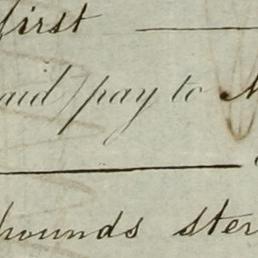 first
aid) pay to
pounds ster